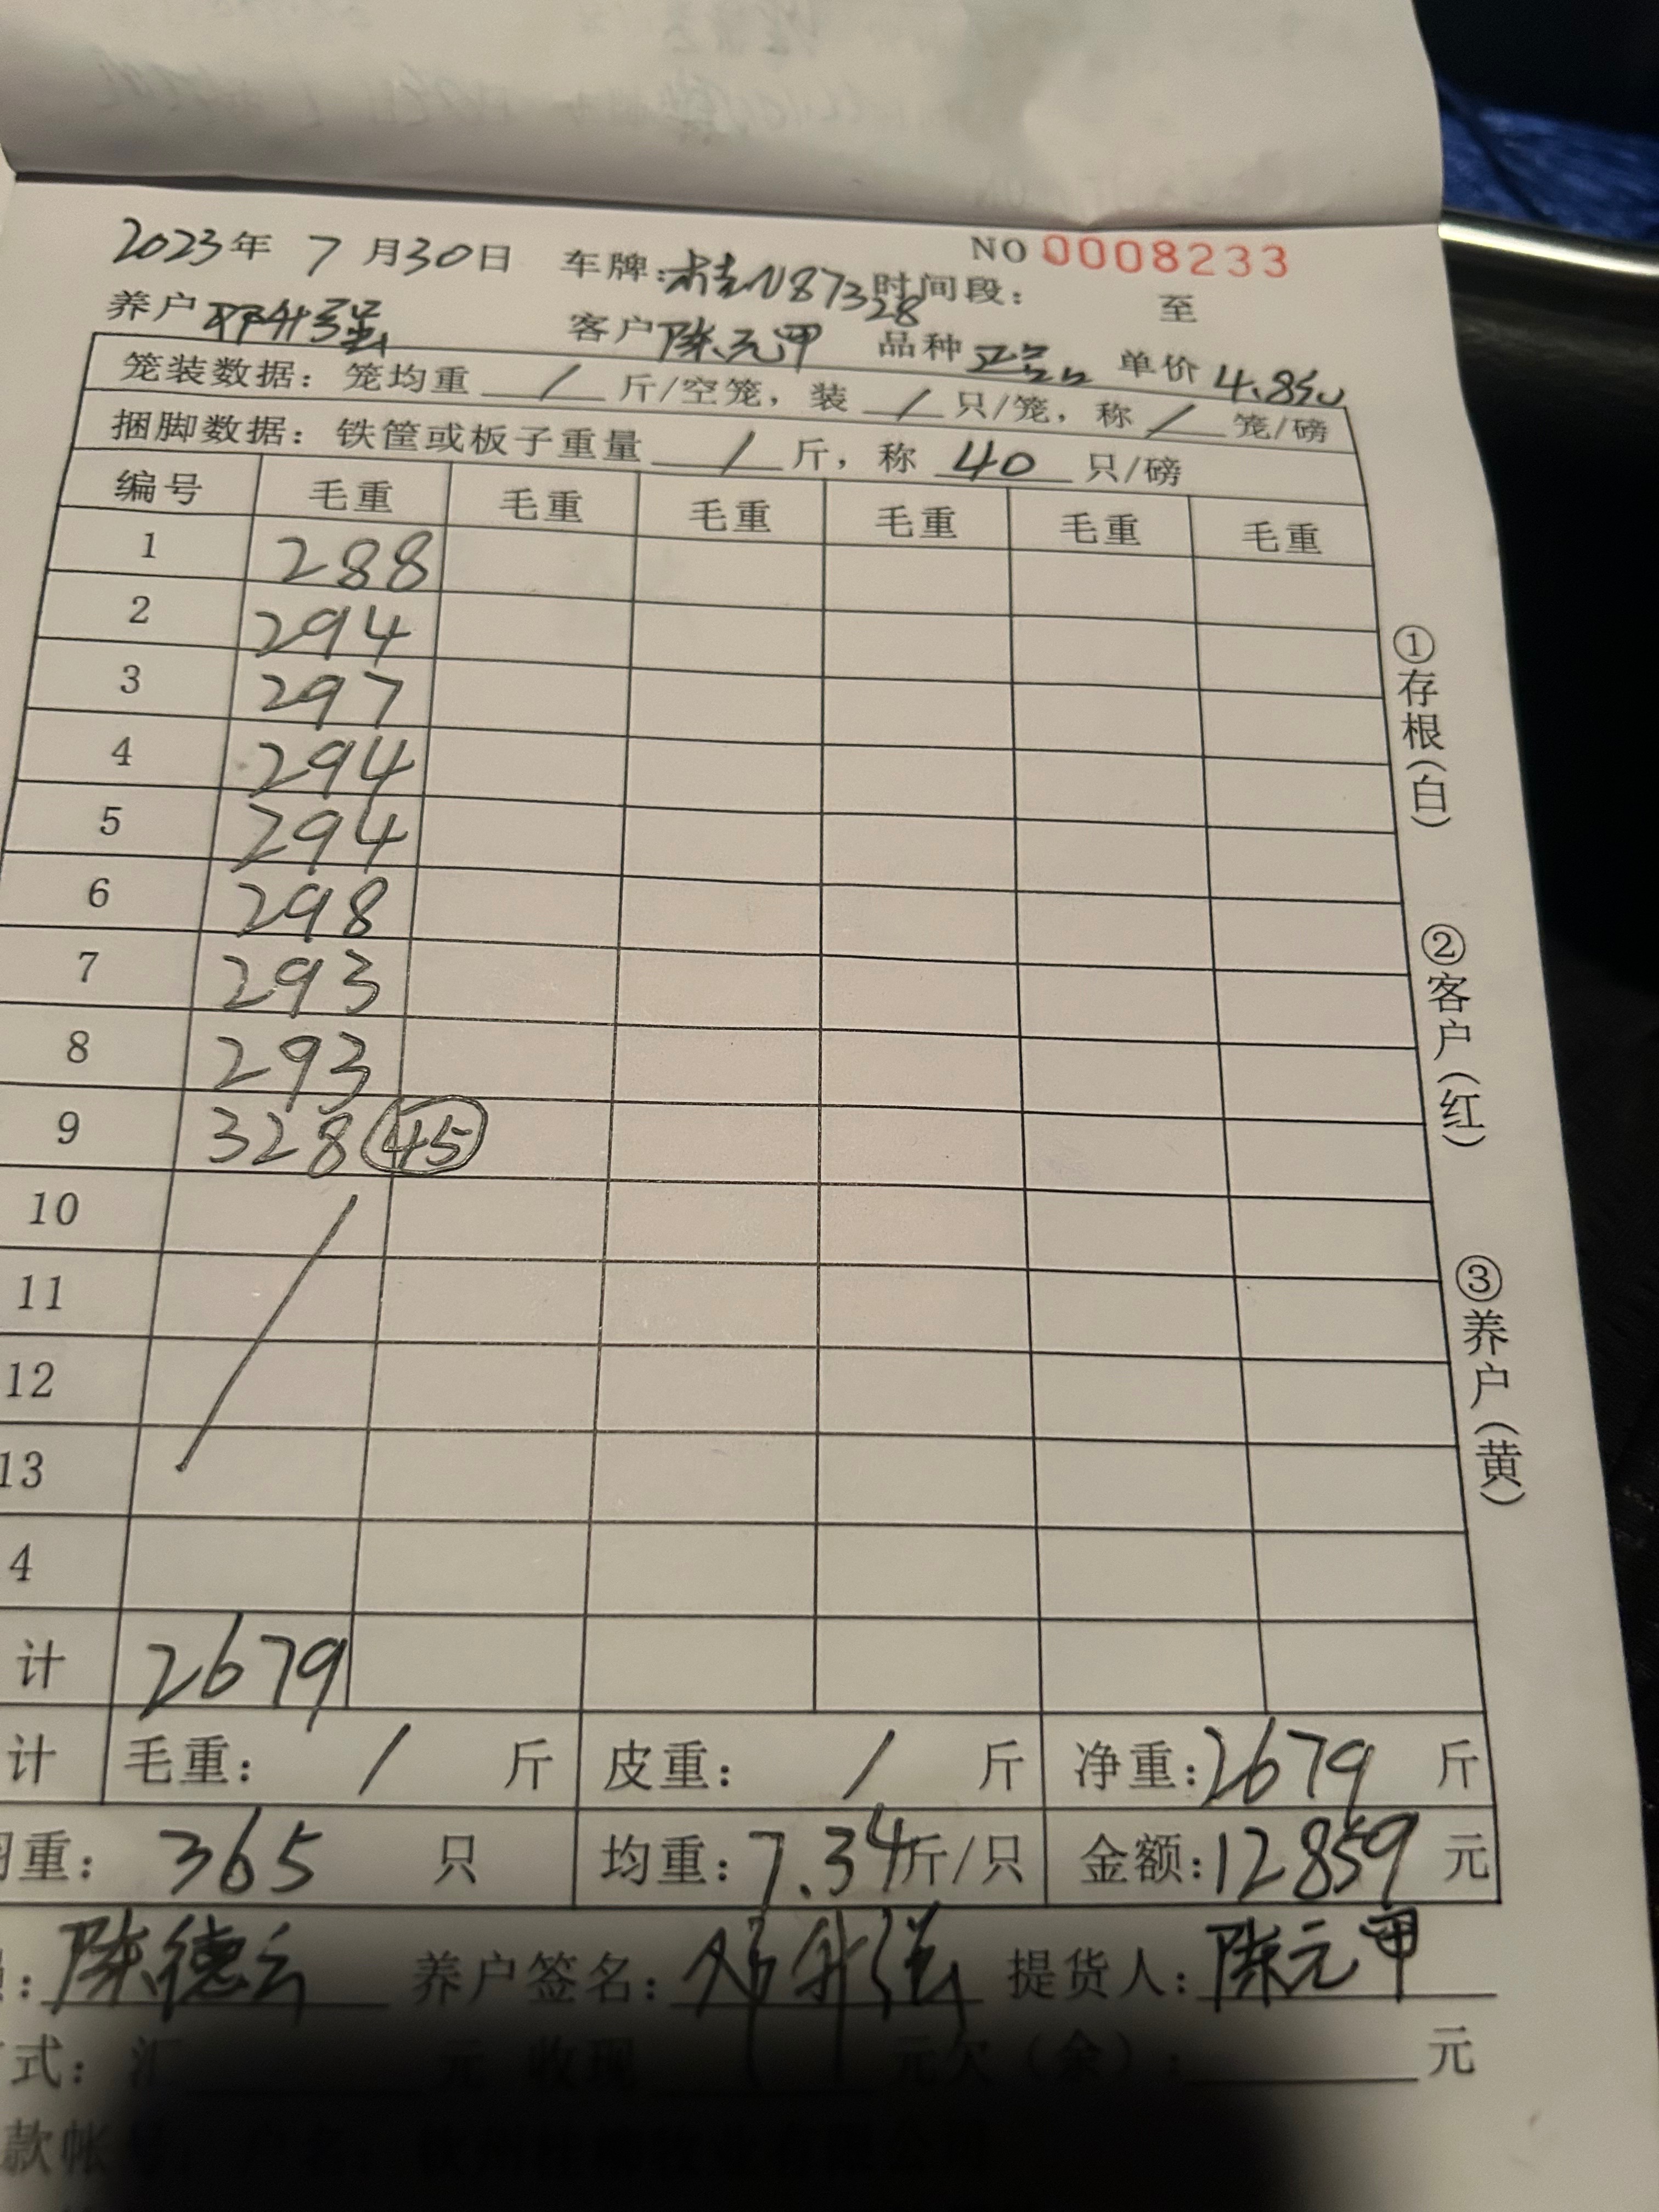 NO 0008233
2023年 7月30日 车牌:桂N87328 时间段: 至
养户 邓升强 客户 陈元甲 品种 正品 单价 4.8元
笼装数据:笼均重 / 斤/空笼,装 / 只/笼,称 / 笼/磅
捆脚数据:铁筐或板子重量 / 斤,称 40 只/磅
编号 毛重 毛重 毛重 毛重 毛重 毛重
1 288
2 294
3 297
4 294
5 294
6 298
7 293
8 293
9 328 45
10
11
12
13
4
计 2679
计 毛重: / 斤 皮重: / 斤 净重:2679 斤
重: 365 只 均重:7.34斤/只 金额:12859 元
:陈德云 养户签名:邓升强 提货人:陈元甲
式:汇 元 收现 元欠(余): 元
款帐号: 户名:
①存根(白)
②客户(红)
③养户(黄)